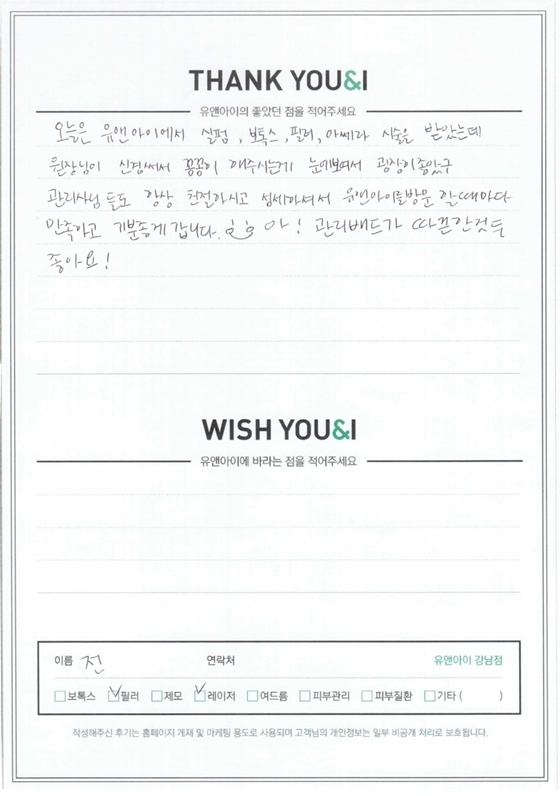 THANK YOU&I
유앤아이의 좋았던 점을 적어주세요
오늘은 유앤아이에서 실펌, 보톡스, 필러, 아쎄라 시술을 받았는데
원장님이 신경써서 꼼꼼히 해주시는게 눈에보여서 굉장히좋았구
관리사님들도 항상 친절하시고 섬세하셔서 유앤아이를방문 할때마다
만족하고 기분좋게갑니다. 아! 관리배드가 따끈한것두
좋아요!
WISH YOU&I
유앤아이에 바라는 점을 적어주세요
이름 전 연락처 유앤아이 강남점
보톡스 필러 제모 레이저 여드름 피부관리 피부질환 기타 ( )
작성해주신 후기는 홈페이지 게재 및 마케팅 용도로 사용되며 고객님의 개인정보는 일부 비공개 처리로 보호됩니다.